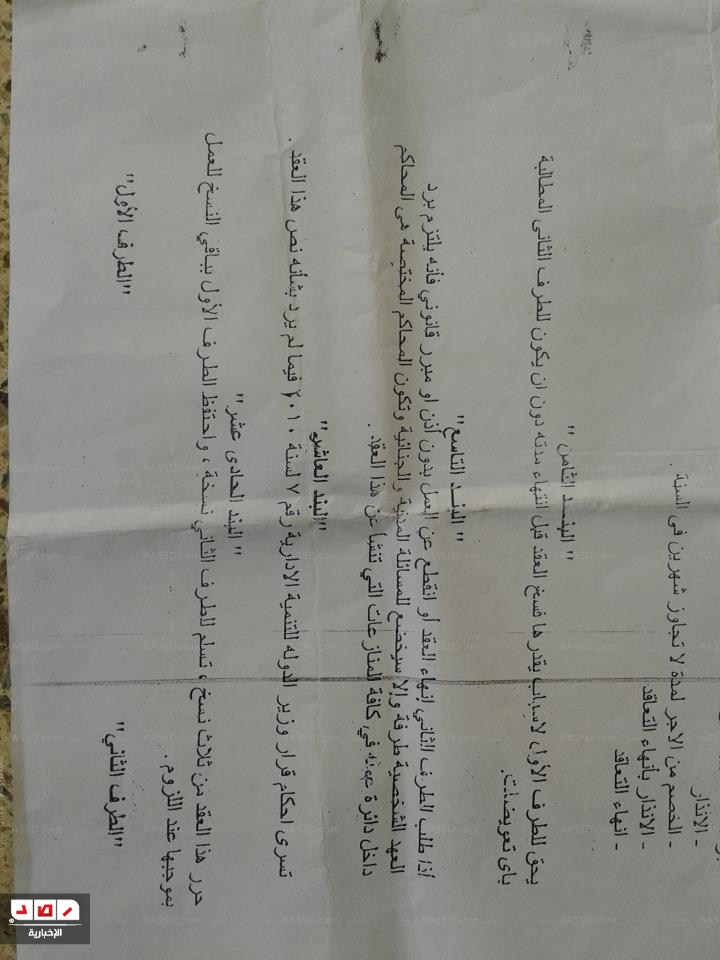 - الانذار
- الخصم من الاجر لمدة لا تجاوز شهرين فى السنة .
- الانذار بأنهاء التعاقد
- انهاء التعاقد
" البنــد الثامن "
يحق للطرف الأول لاسباب يقدرها فسخ العقد قبل انتهاء مدته دون ان يكون للطرف الثانى المطالبة
باى تعويضات.
" البنــد التاسع "
اذا طلب الطرف الثاني إنهاء العقد أو انقطع عن العمل بدون أذن او مبرر قانوني فأنه يلتزم برد
العهد الشخصية طرفة وإلا سيخضع للمسائلة المدنية والجنائية وتكون المحاكم المختصة هى المحاكم
داخل دائرة في كافة المنازعات التي تنشأ عن هذا العقد .
"البند العاشر"
تسرى احكام قرار وزير الدوله للتنمية الادارية رقم ٧ لسنة ٢٠١٠ فيما لم يرد بشأنه نص هذا العقد .
" البند الحادى عشر "
حرر هذا العقد من ثلاث نسخ ، تسلم لاطرف الثاني نسخة ، واحتفظ الطرف الأول بباقي النسخ للعمل
بموجبها عند اللزوم .
"الطرف الأول"
"الطرف الثاني"
رصد
الإخبارية
RASSD.com